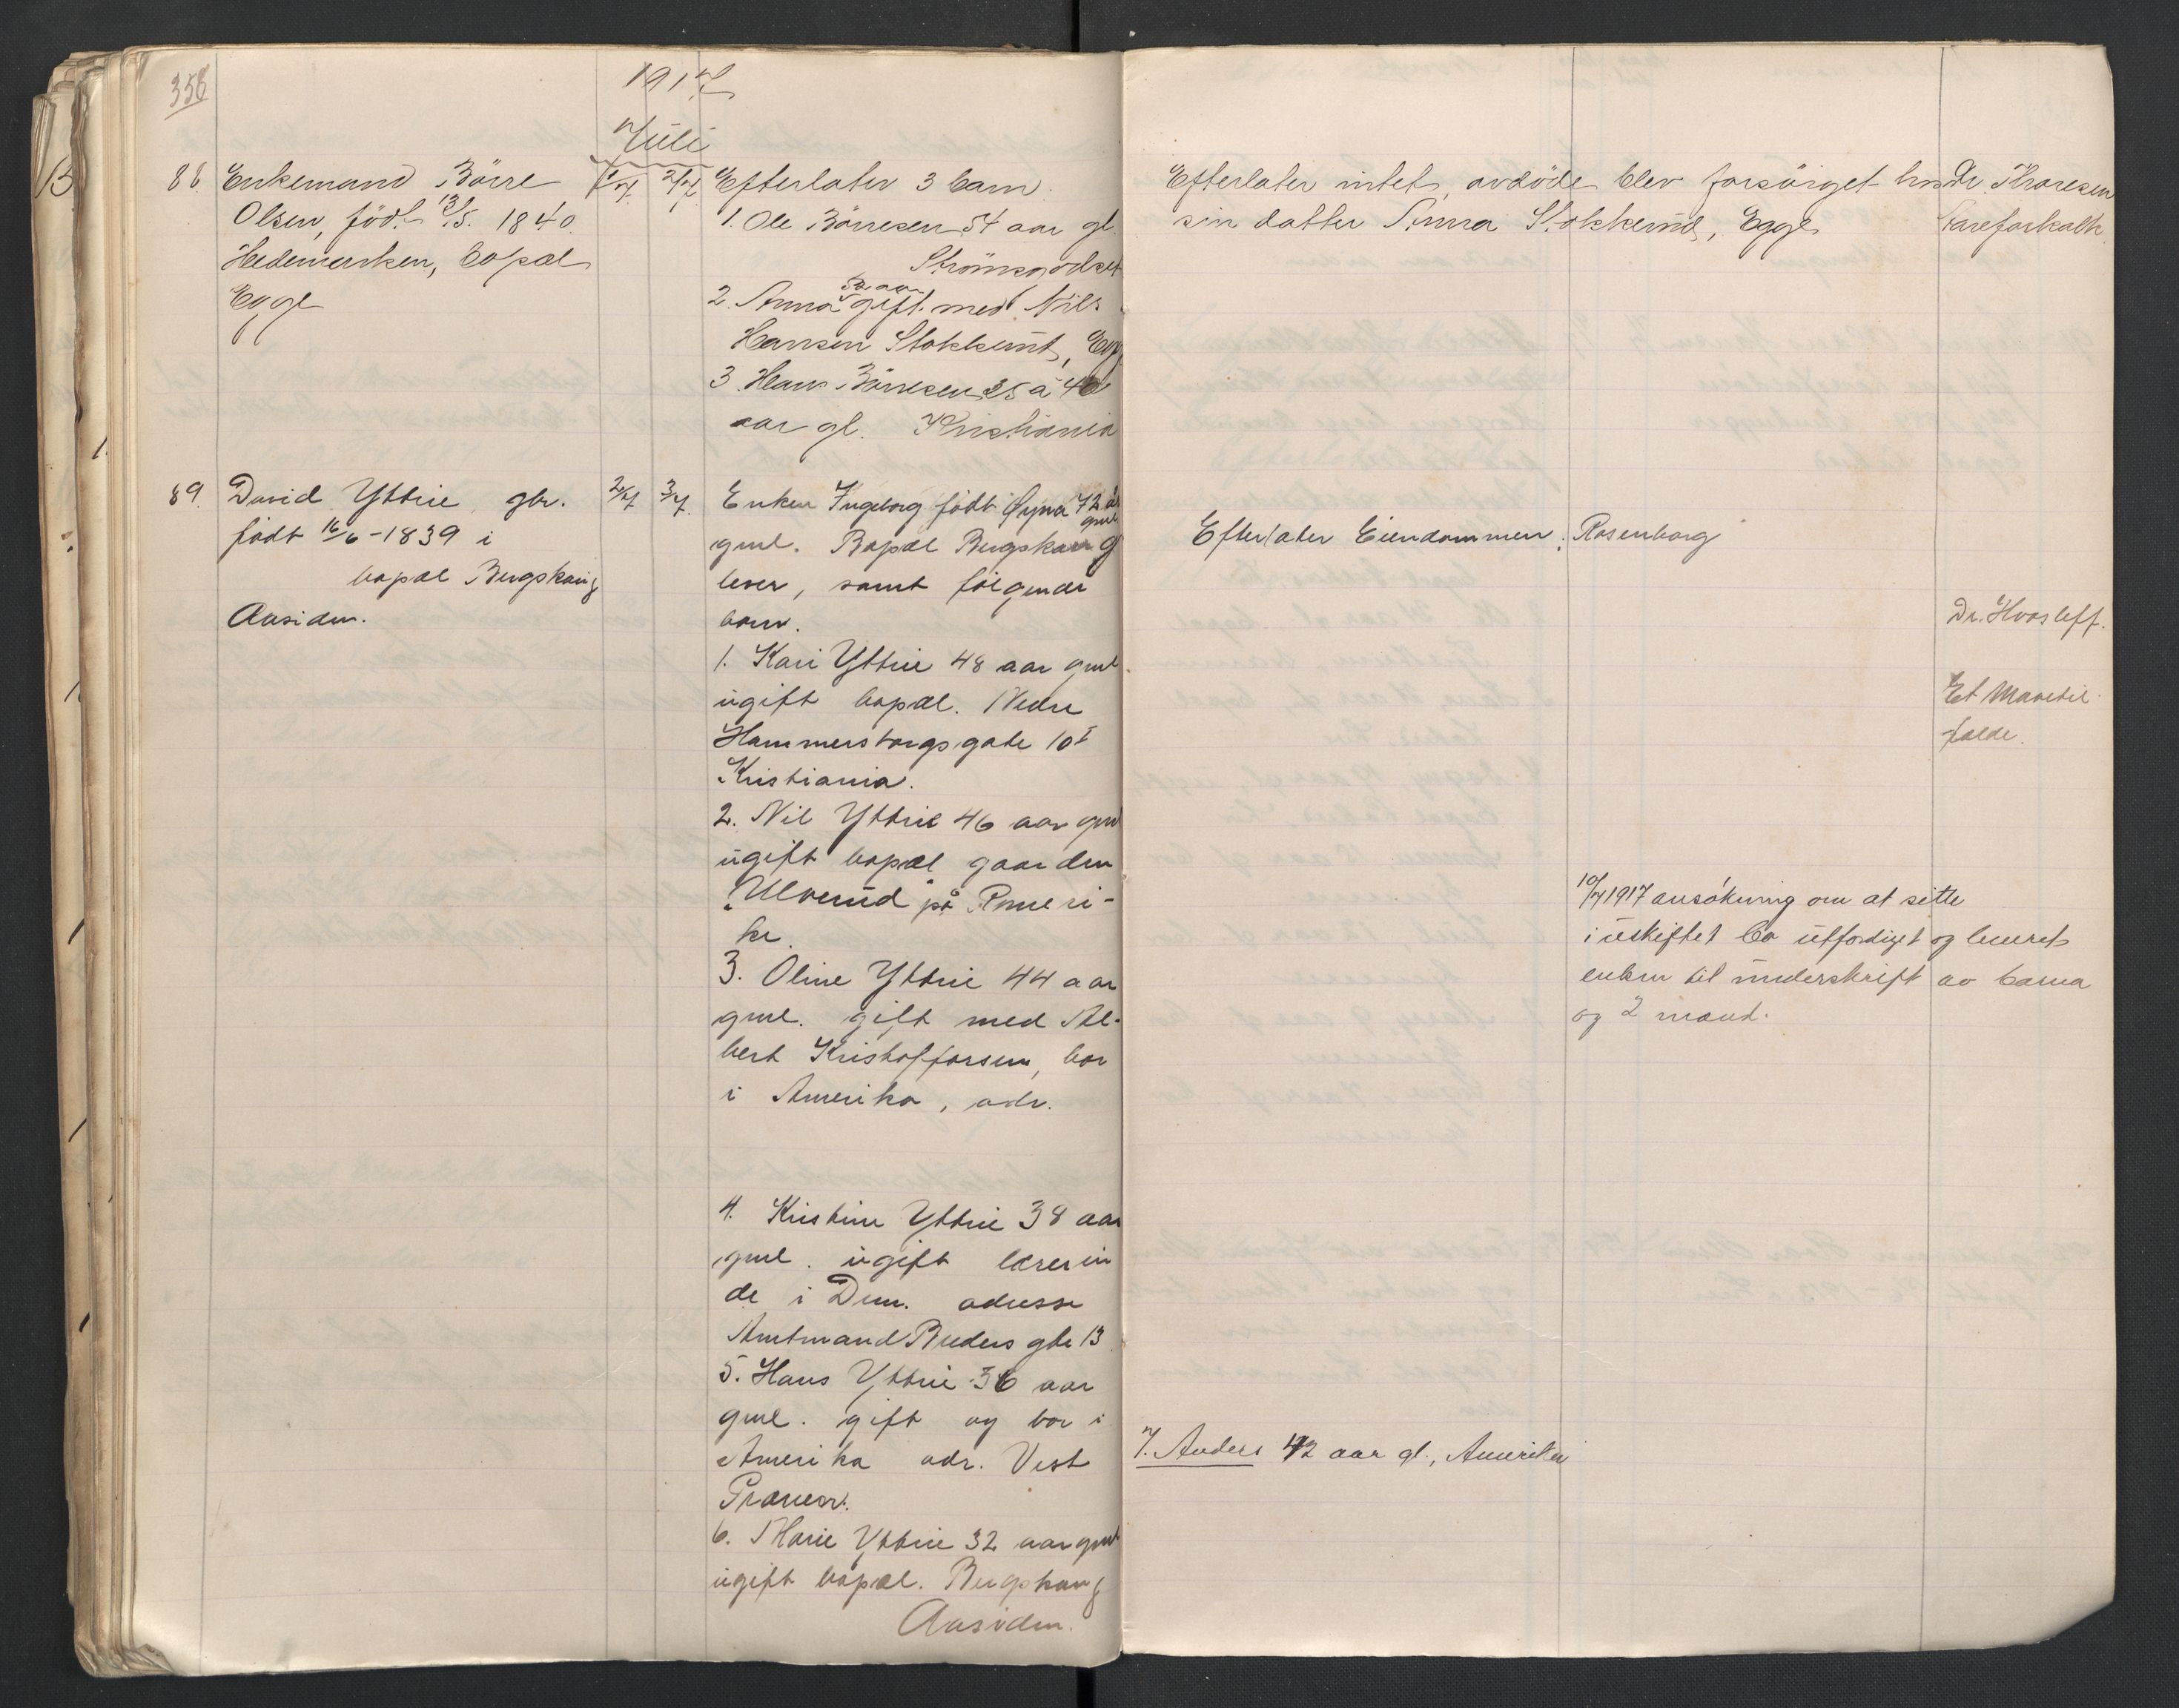 356
1917
Juli
88. Enkemand Börre
Olsen, född 13/5. 1840
Hedemarken, bopæl
Egge
1/7 2/7
Efterlater 3 barn.
1. Ole Börresen 54 aar gl.
Strömsgodset
2. Anna gift. med Nils
Hansen Stokkerud, Egge
3. Hans Börresen 35 à 40
aar gl. Kristiania
Efterlater intet, avdöde blev forsörget hos
sin datter Anna Stokkerud, Egge
Dr. Thoresen
89. David Yttrie, gbr.
født 16/6-1839 i
bopæl Bergskaug
Aasiden.
2/7 3/7
Enken Ingeborg født 72 år
gml. Bopæl Bergskaug
lever, samt følgende
barn.
1. Kari Yttrie 48 aar gml.
ugift bopæl. Nedre
Hammersborgsgate 10 I
Kristiania.
2. Nil Yttrie 46 aar gml
ugift bopæl gaarden
"Ulverud" på Romeri-
ke.
3. Oline Yttrie 44 aar
gml. gift med Al-
bert Kristoffersen, bor
i Amerika, adr.
4. Kristine Yttrie 38 aar
gml. ugift lærerin
de i Dmn. adresse
Amtmand Breders gte 13
5. Hans Yttrie 36 aar
gml. gift og bor i
Amerika adr. Vest
6. Marie Yttrie 32 aar gml
ugift bopæl. Bergskaug
Aasiden.
Efterlater Eiendommen: Rosenborg
Dr. Hvosleff.
Et Mavetil-
fælde.
10/7 1917 ansökning om at sitte
i uskiftet bo utferdiget og leveret
enken til underskrift av barna
og 2 mænd.
7. Anders 42 aar gl., Amerika